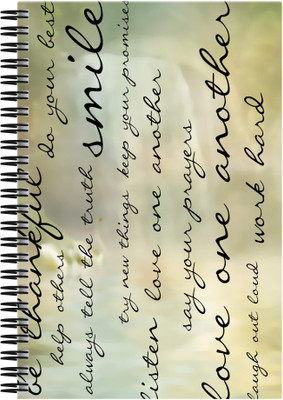 be thankful
do your best
help others
always tell the truth
smile
try new things keep your promises
listen love one another
say your prayers
love one another
laugh out loud
work hard